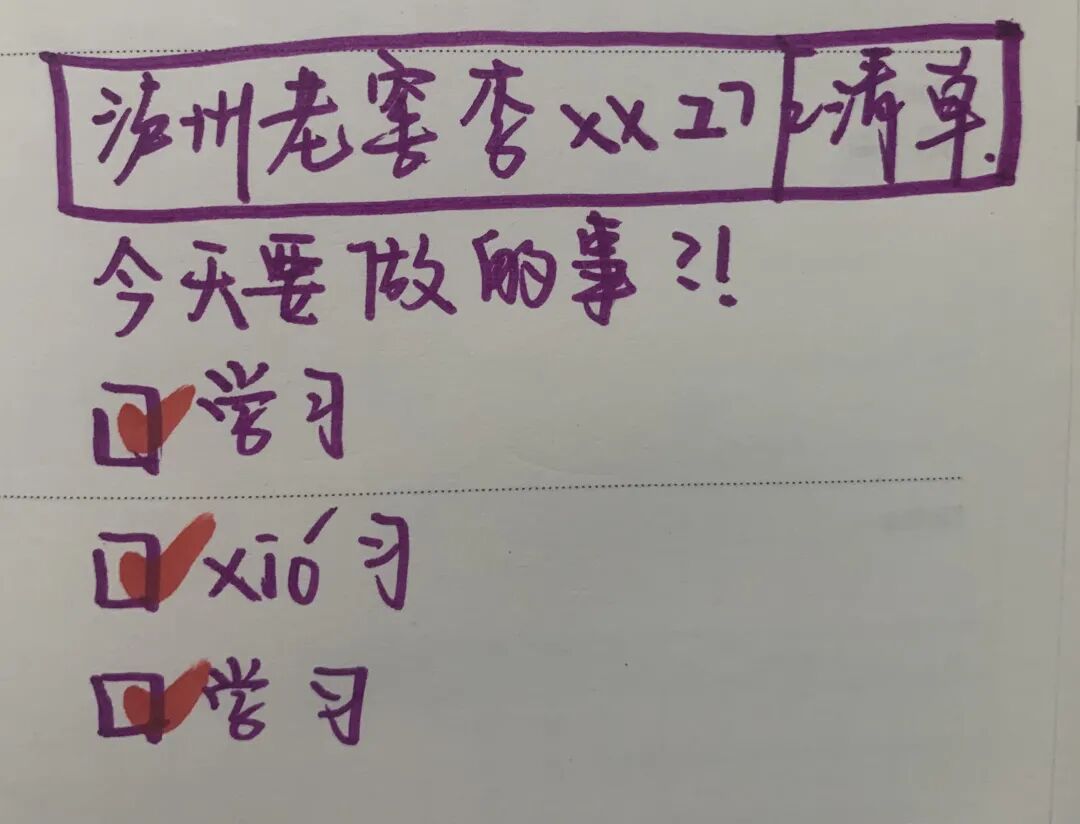 泸州老窖李xx27 清单.
今天要做的事?!
学习
xió习
学习